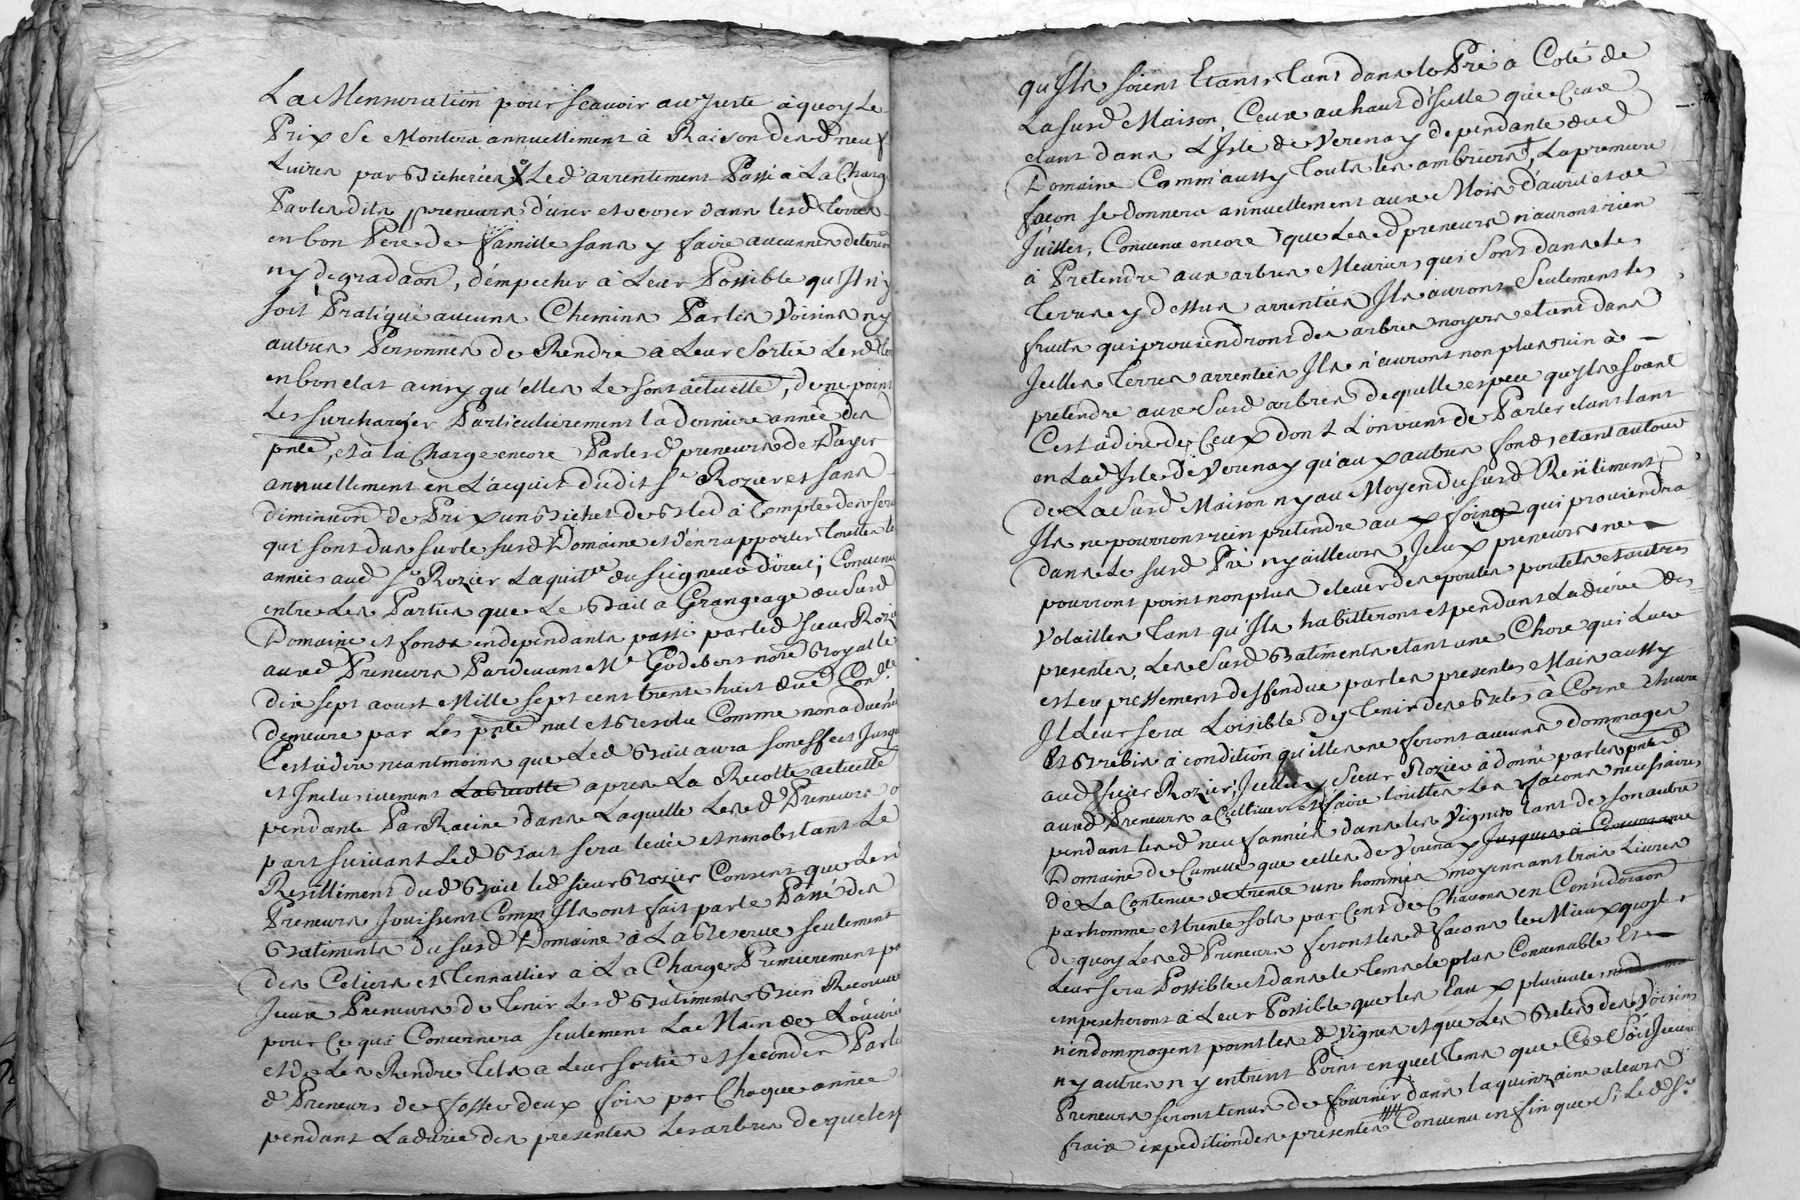 La Mensuration pour scavoir au juste à quoy le
Prix se Montera annuellement à Raison desd neuf
Livres par Bicherées Led arrentement Passé à La Charg
Par lesdits preneurs d'user et verser dans lesd Terres
en bon Pere de famille sans y faire aucunnes deterion
ny degradaon, d'empecher à Leur Possible qu'Il n'y
soit Pratiqué aucuns Chemins Par les Voisins ny
autres Personnes de Rendre à Leur Sortie Lesd Ter
en bon etat ainsy qu'elles Le sont actuelle, de ne point
Les surcharger Particulierement la derniere année des
pnte, et à la Charge encore Par lesd preneurs de Payer
annuellement en L'acquit dudit Sr Rozier et sans
diminuon de Prix un Bichet de Bled à Compte des serv
qui sont dus sur le susd Domaine et d'en rapporter Touttes les
années aud Sr Rozier Laquitte du seigneur direct; Convenu
entre Les Parties que Le Bail à Grangeage du Susd
Domaine et fonds independants passé par led sieur Rozie
auxd Preneurs Pardevant Me Godebert nore Royal le
Dix sept aoust Mille sept cent trente huit dud Con.
demeure par Les pnte nul et Resolu Comme non advenu
C'est à dire neantmoins que Led Bail aura son effet Jusqu
et Inclusivement La Recolte apres La Recolte actuelle
pendante Par Racine dans Laquelle Lesd Preneurs o
part suivant Led Bail sera levée et nonobstant Le
Resilliment dud Bail led sieur Rozier Consent que Lesd
Preneurs Jouissent Comm Ils ont fait par le Passé des
Batiments du susd Domaine à La Reserve seulement
des Celiers et Tennallier à La Charge Premierement pa
Iceux Preneurs de Tenir Lesd Batiments Bien Recouver
pour Ce qui Concernera seulement La Main de L'ouvrie
et de Les Rendre Tels a Leur sortie et secondem Par les
d Preneurs de fosser deux fois par Chaque année
pendant La durée des presentes Les arbres de quelesp
qu'Ils soient Etants Tant dans le Pré à Coté de
La Susd Maison, Ceux au haut d'Icelle que Ceux
etant dans L'Isle de Verenay dependante dud
Domaine Comm'aussy Touts les ambriers, La premiere
façon se donnera annuellement aux Mois d'avril et de
Juillet, Convenu encore que Lesd preneurs n'auront rien
à Pretendre aux arbres Meuriers qui Sont dans Les
Terres cy dessus arrentées Ils auront Seulement les
fruits qui proviendront des arbres noyers etant dans
Icelles Terres arrentées Ils n'auront non plus rien à
pretendre aux Susd arbres de quelle espece qu'Ils soient
C'est à dire de Ceux dont L'on vient de Parler etant tant
en Lad Isle de Verenay qu'aux autres fond, etant autour
de La Susd Maison ny au Moyen du susd Resiliment
Ils ne pourront rien pretendre aux foins qui proviendra
dans Le susd Pré ny ailleurs, Iceux preneurs ne
pourront point non plus elever des poules poulets et autres
Volailles Tant qu'Ils habitteront et pendant La durée des
presentes, Les Susd Batiments etant une Chose qui Leur
est expressement deffendue par les presentes Mais aussy
Il Leur sera Loisible d'y Tenir des Betes à Corne chevre
Et Brebis à condition qu'elles ne feront aucuns dommages
aud sieur Rozier, Icelluy Sieur Rozier à donné par les pnte
auxd Preneurs à Cultiver et faire touttes Les façons necessaires
pendant lesd neuf années dans les Vignes tant de son autre
Domaine de Cumelle que celles de Verenay Jusques à Concurrance
de La Contenue de trente un hommées moyennant trois Livres
par homme et trente sols par Cent de Chavons en Consideraon
de quoy Lesd Preneurs feront lesd façons le Mieux qu'Il
Leur sera Possible et dans le Tems le plus Convenable Et
empescheront à Leur Possible que les Eaux pluviales
n'endommagent point les d Vignes et que Les Betes des Voisins
ny autres n'y entrent Point en quel Tems que Ce Soit Iceux
Preneurs seront tenus de fournir dans la quinzaine à leurs
fraix expedition des presentes Convenu enfin que Si Led Sr